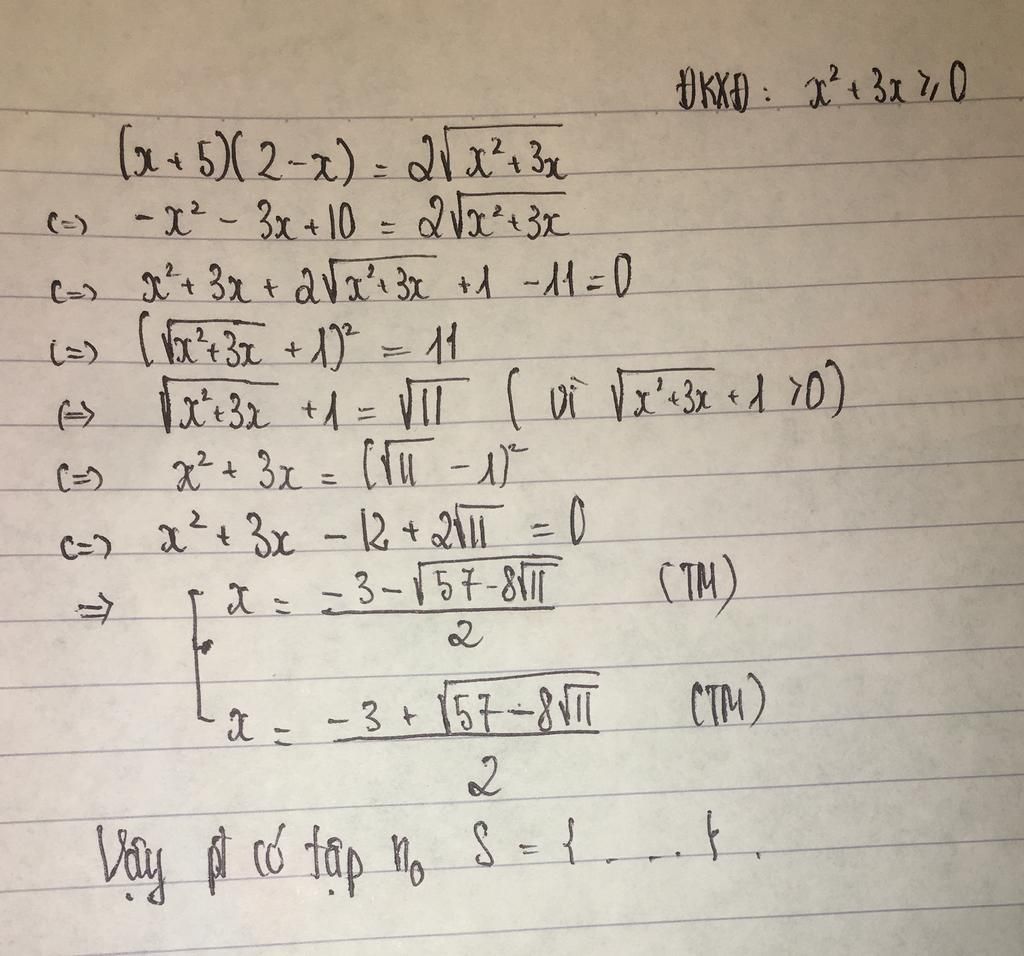 ĐKXĐ: x² + 3x ⩾ 0
(x + 5)(2 - x) = 2√(x² + 3x)
<=> -x² - 3x + 10 = 2√(x² + 3x)
<=> x² + 3x + 2√(x² + 3x) + 1 - 11 = 0
<=> (√(x² + 3x) + 1)² = 11
<=> √(x² + 3x) + 1 = √11 ( vì √(x² + 3x) + 1 > 0)
<=> x² + 3x = (√11 - 1)²
<=> x² + 3x - 12 + 2√11 = 0
=> [ x = (-3 - √(57 - 8√11))/2 (TM)
x = (-3 + √(57 - 8√11))/2 (TM)
Vậy pt có tập n₀ S = { .... }.